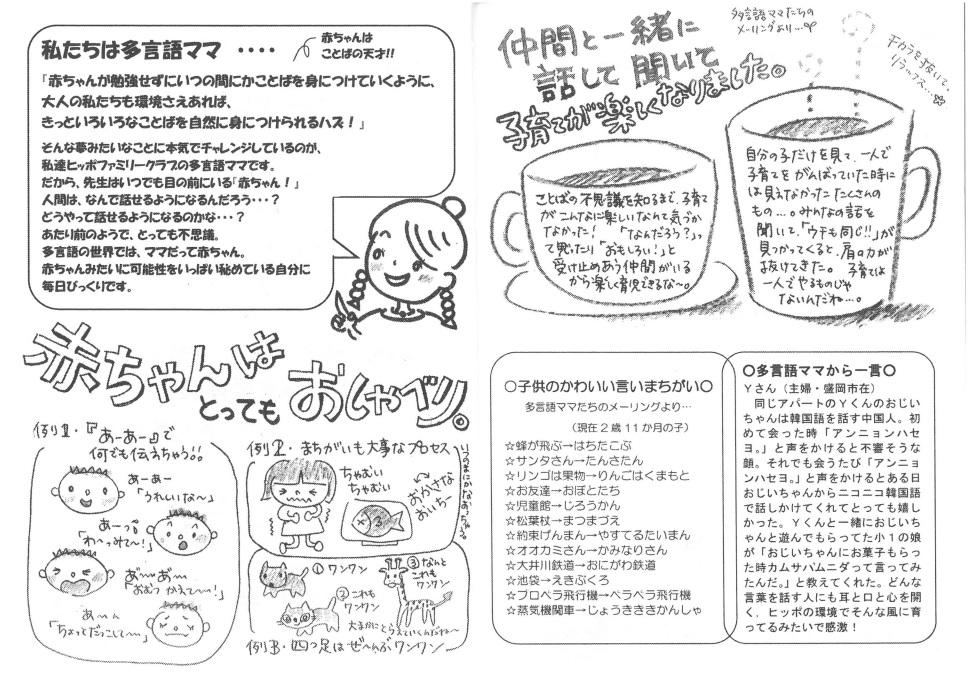 私たちは多言語ママ ‥‥
赤ちゃんは
ことばの天才!!
「赤ちゃんが勉強せずにいつの間にかことばを身につけていくように、
大人の私たちも環境さえあれば、
きっといろいろなことばを自然に身につけられるハズ！」
そんな夢みたいなことに本気でチャレンジしているのが、
私達ヒッポファミリークラブの多言語ママです。
だから、先生はいつでも目の前にいる「赤ちゃん！」
人間は、なんで話せるようになるんだろう・・・？
どうやって話せるようになるのかな・・・？
あたり前のようで、とっても不思議。
多言語の世界では、ママだって赤ちゃん。
赤ちゃんみたいに可能性をいっぱい秘めている自分に
毎日びっくりです。
赤ちゃんは
とっても おしゃべり。
例1・『あーあー』で
何でも伝えちゃう!!
あーあー
「うれしいな〜」
あーっ
「わ〜っみて〜!」
あ゛〜あ゛ー
「おむつ かえて〜!」
あ〜ん
「ちょっとだっこして〜」
例2・まちがいも大事なプロセス
ちゃむい
ちゃむい
おかさな
おいちー
①ワンワン
②これも
ワンワン
③なんと
これも
ワンワン
大まかにとらえていくんだね〜
例3・四つ足はぜ〜んぶワンワン
多言語ママたちの
メーリングより…
仲間と一緒に
話して 聞いて
子育てが楽しくなりました。
チカラを抜いて、
リラックス…
ことばの不思議を知るまで、子育て
がこんなに楽しいなんて気づか
なかった! 「なんだろう?」っ
て思ったり「おもしろい!」と
受け止めあう仲間がいる
から楽しく育児できるな〜。
自分の子だけを見て、一人で
子育てを がんばっていた時に
は見えなかった たくさんの
もの…。みんなの話を
聞いて、「ウチも同じ!!」が
見つかってくると、肩の力が
抜けてきた。 子育ては
一人でやるものじゃ
ないんだね…。
〇子供のかわいい言いまちがい〇
多言語ママたちのメーリングより…
（現在２歳11か月の子）
☆蜂が飛ぶ→はちたこぶ
☆サンタさん→たんさたん
☆リンゴは果物→りんごはくまもと
☆お友達→おぼとたち
☆児童館→じろうかん
☆松葉杖→まつまづえ
☆約束げんまん→やすてるたいまん
☆オオカミさん→かみなりさん
☆大井川鉄道→おにがわ鉄道
☆池袋→えきぶくろ
☆プロペラ飛行機→ペラペラ飛行機
☆蒸気機関車→じょうききききかんしゃ
〇多言語ママから一言〇
Ｙさん（主婦・盛岡市在）
同じアパートのＹくんのおじい
ちゃんは韓国語を話す中国人。初
めて会った時「アンニョンハセ
ヨ。」と声をかけると不審そうな
顔。それでも会うたび「アンニョ
ンハセヨ。」と声をかけるとある日
おじいちゃんからニコニコ韓国語
で話しかけてくれてとっても嬉し
かった。Ｙくんと一緒におじいち
ゃんと遊んでもらってた小１の娘
が「おじいちゃんにお菓子もらっ
た時カムサハムニダって言ってみ
たんだ。」と教えてくれた。どんな
言葉を話す人にも耳と口と心を開
く、ヒッポの環境でそんな風に育
ってるみたいで感激！